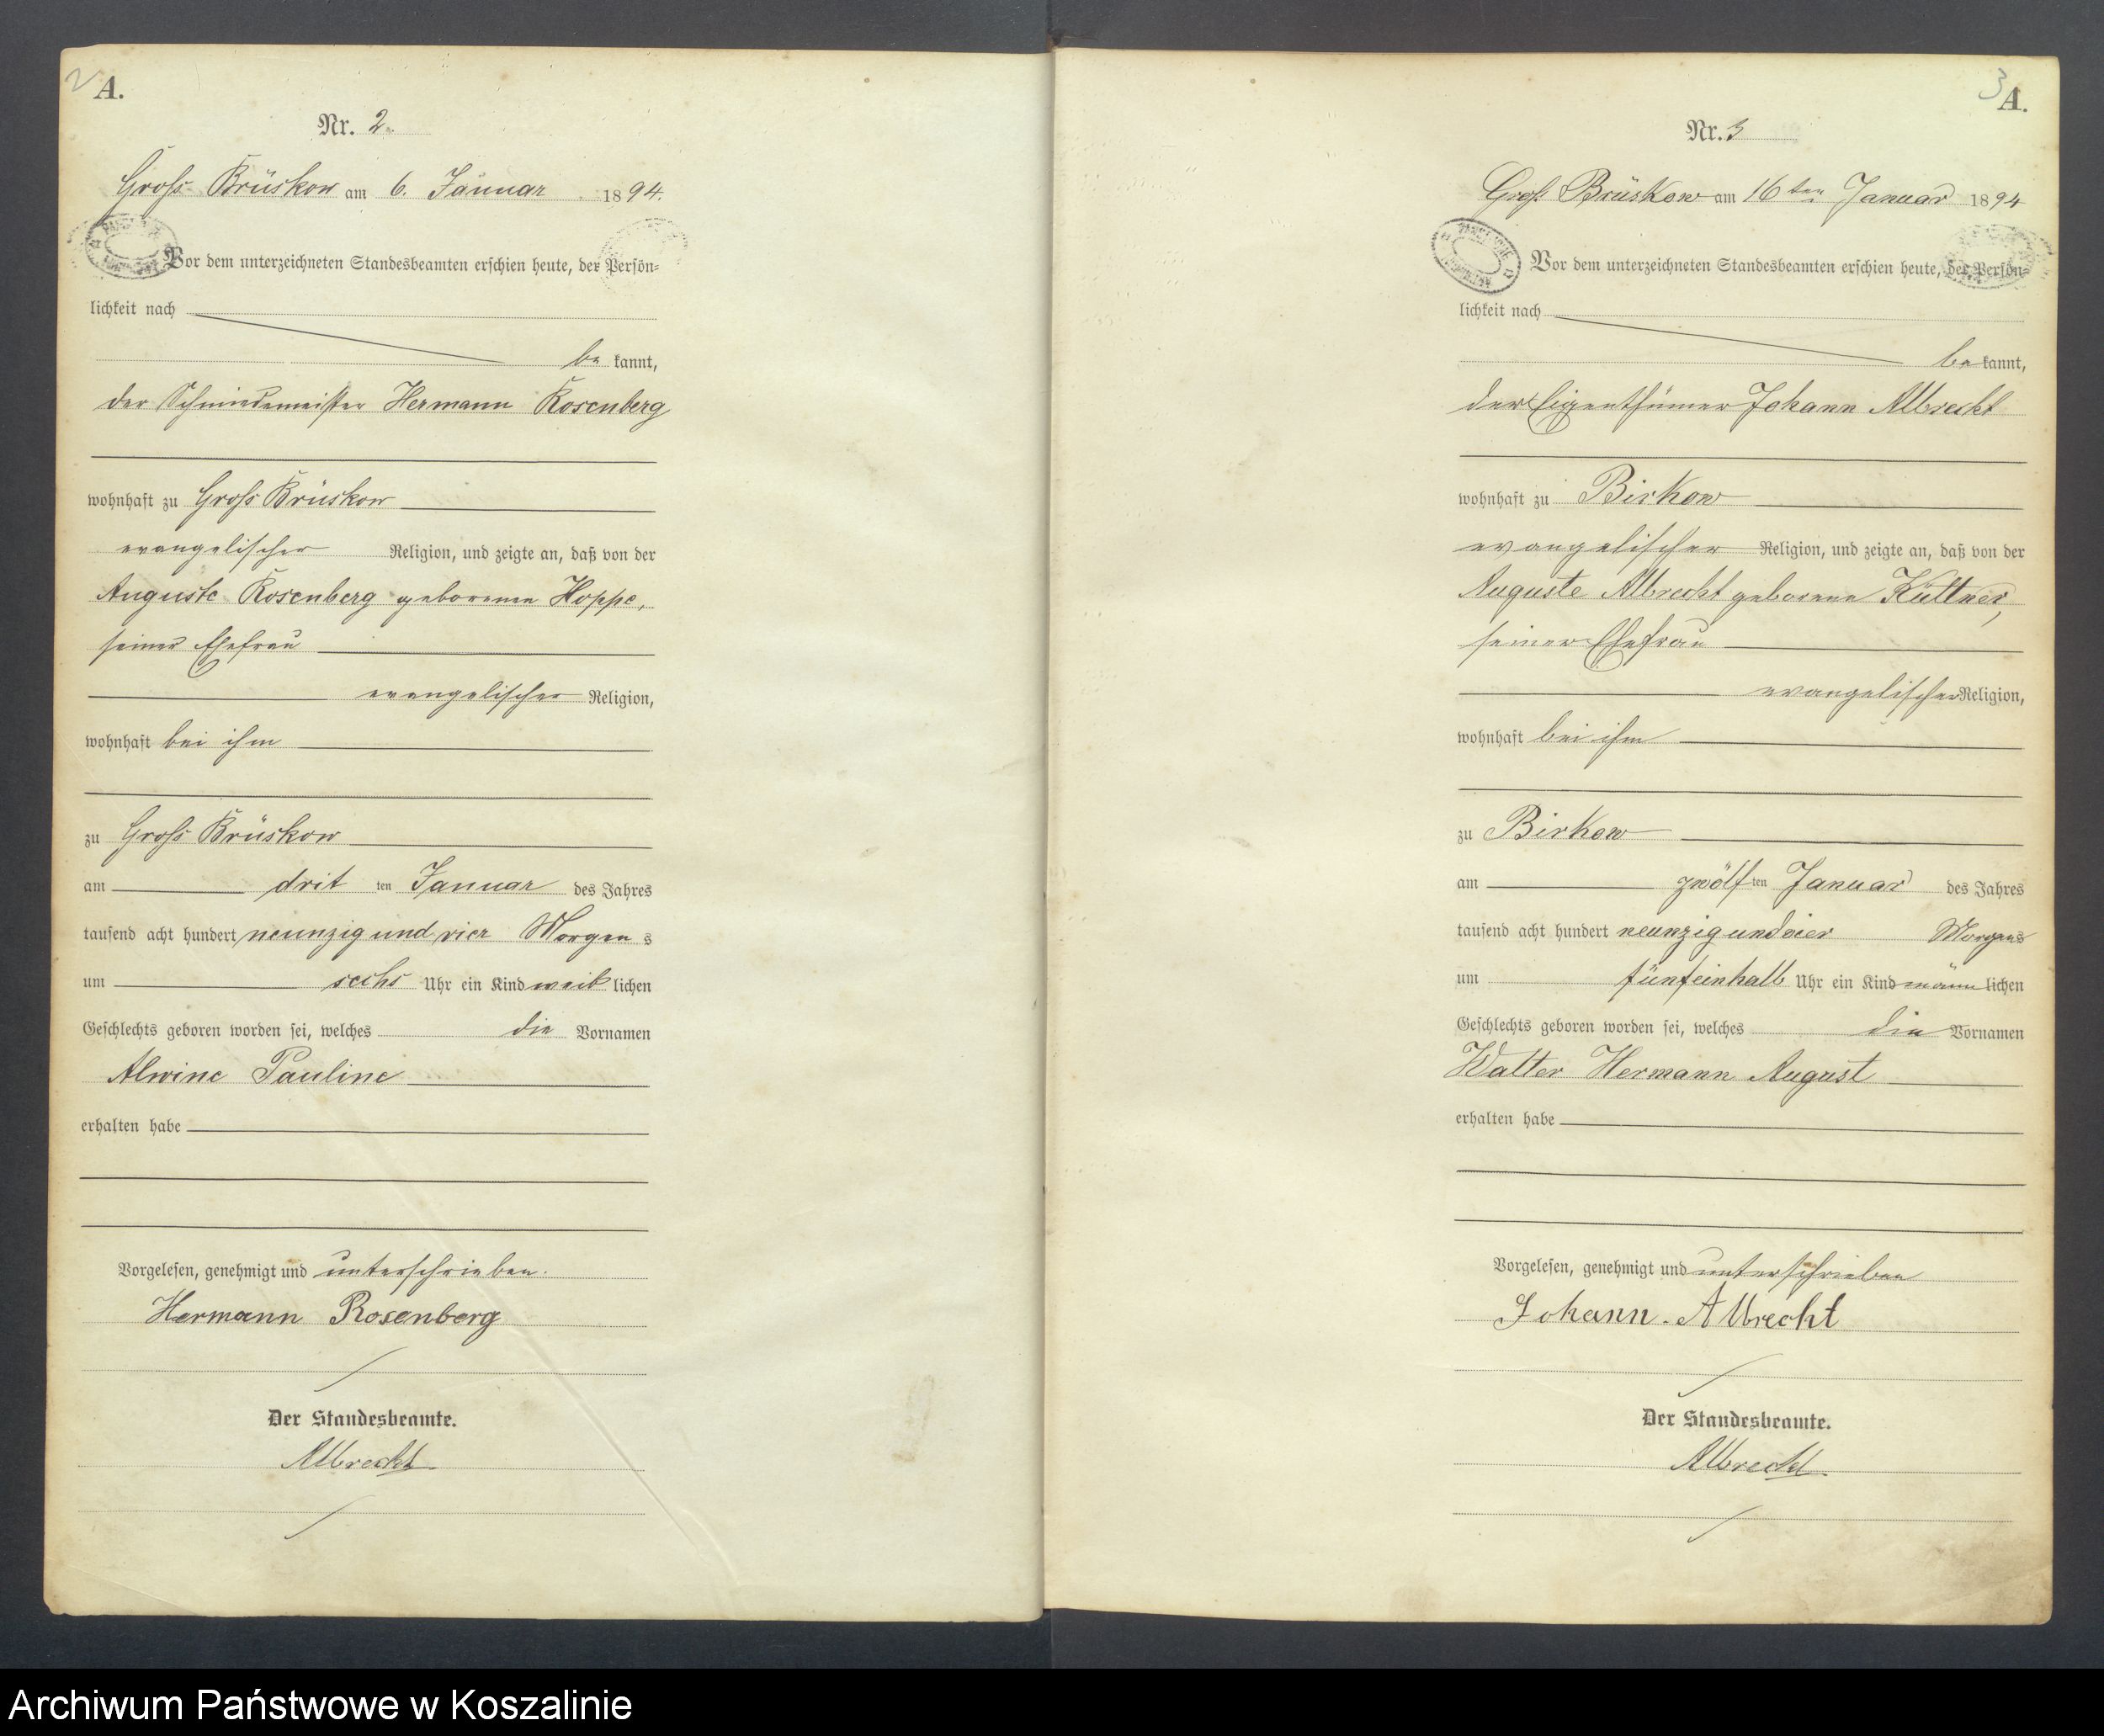 2
A.
Nr. 2.
Gross Brüskow am 6. Januar 1894.
Vor dem unterzeichneten Standesbeamten erschien heute, der Persön=
lichkeit nach
be kannt,
der Schmiedemeister Hermann Rosenberg
wohnhaft zu Gross Brüskow
evangelischer Religion, und zeigte an, daß von der
Auguste Rosenberg geborenen Hoppe,
seiner Ehefrau
evangelischer Religion,
wohnhaft bei ihm
zu Gross Brüskow
am drit ten Januar des Jahres
tausend acht hundert neunzig und vier Morgen s
um sechs Uhr ein Kind weib lichen
Geschlechts geboren worden sei, welches die Vornamen
Alwine Pauline
erhalten habe
Vorgelesen, genehmigt und unterschrieben.
Hermann Rosenberg
Der Standesbeamte.
Albrecht
3
A.
Nr. 3
Gross Brüskow am 16ten Januar 1894
Vor dem unterzeichneten Standesbeamten erschien heute, der Persön=
lichkeit nach
be kannt,
der Eigenthümer Johann Albrecht
wohnhaft zu Birkow
evangelischer Religion, und zeigte an, daß von der
Auguste Albrecht geborene Küttner,
seiner Ehefrau
evangelischer Religion,
wohnhaft bei ihm
zu Birkow
am zwölf ten Januar des Jahres
tausend acht hundert neunzig und vier Morgens
um fünfeinhalb Uhr ein Kind männ lichen
Geschlechts geboren worden sei, welches die Vornamen
Walter Hermann August
erhalten habe
Vorgelesen, genehmigt und unterschrieben
Johann Albrecht
Der Standesbeamte.
Albrecht
Archiwum Państwowe w Koszalinie